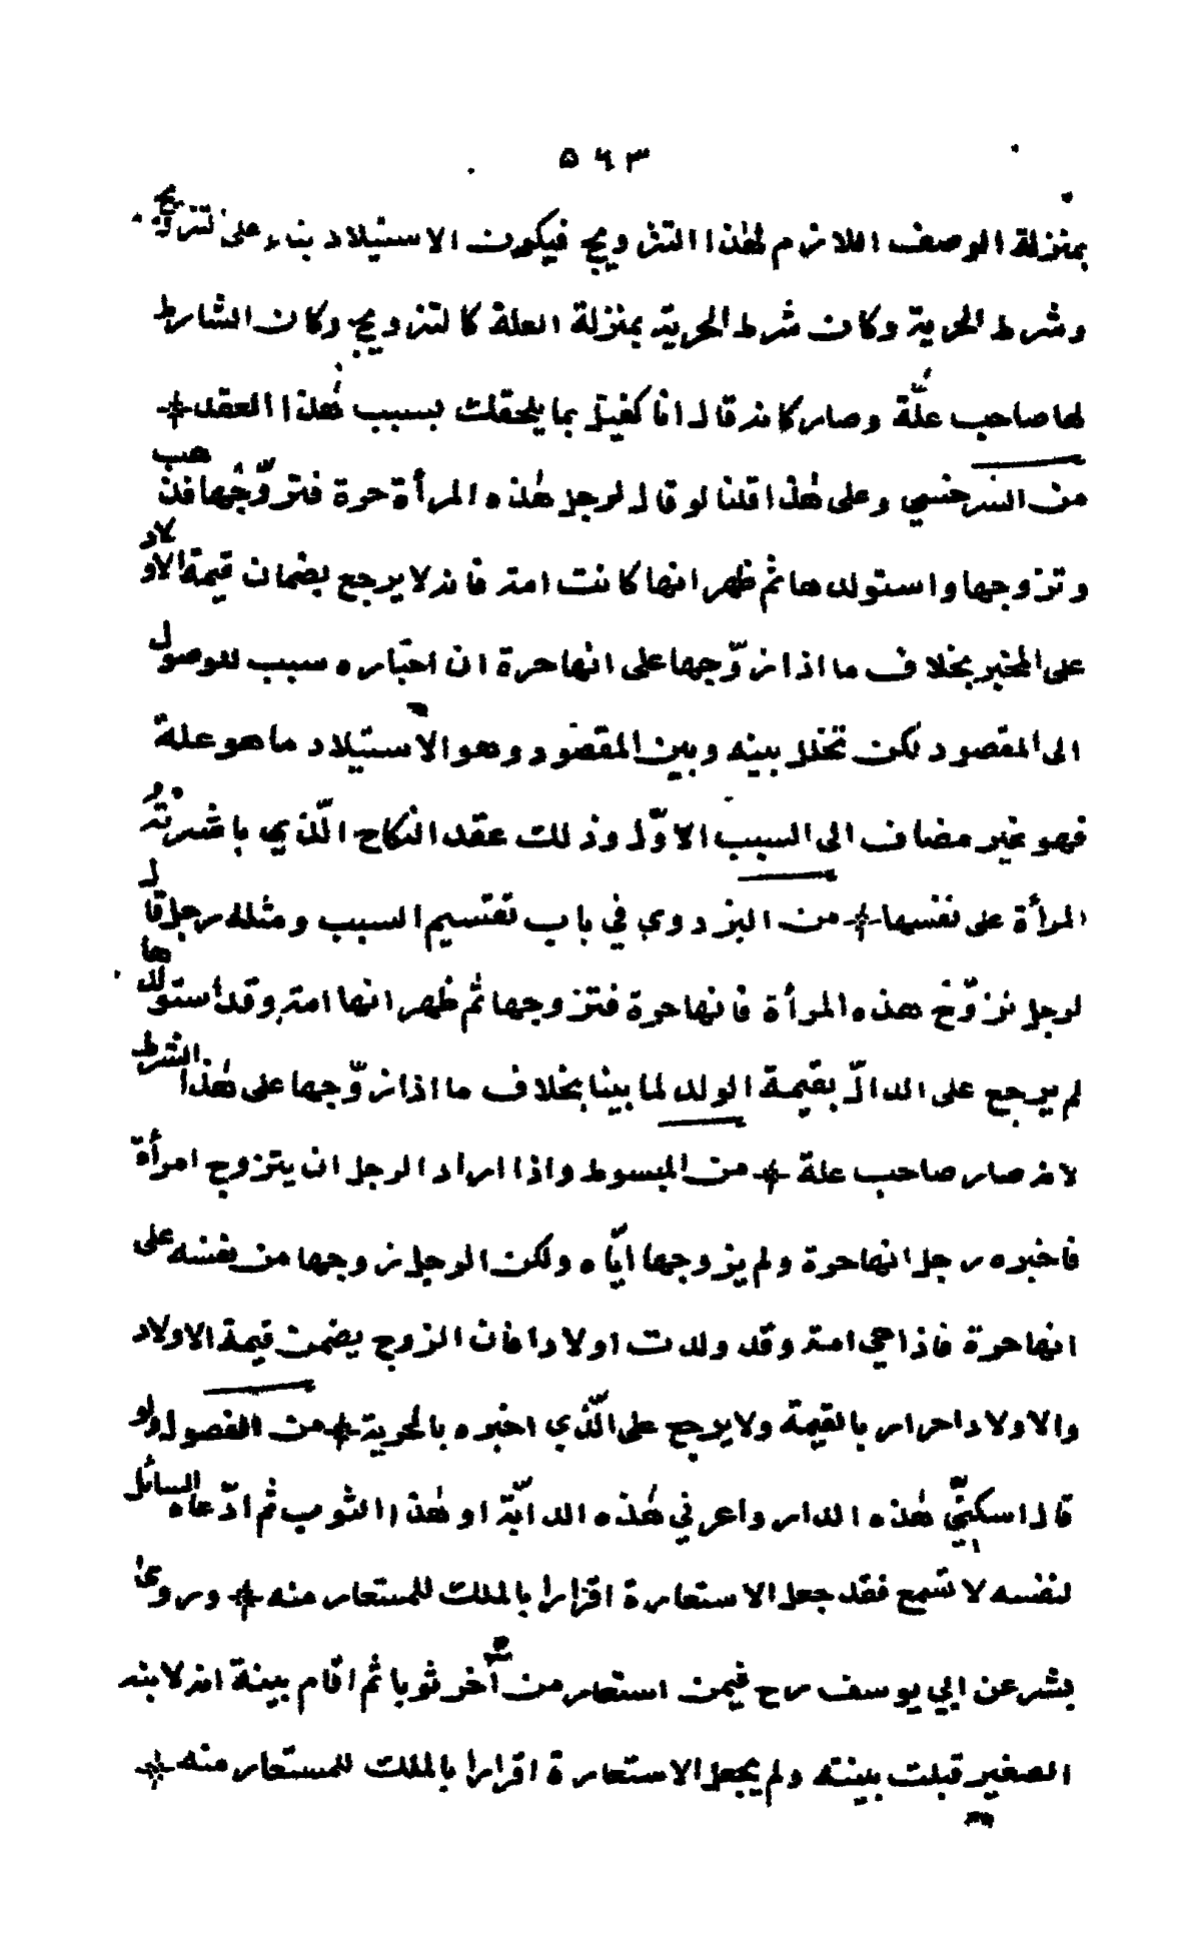 ٥٦٣
بمنزلة الوصف اللازم لهذا التزويج فيكون الاستيلاد بناء على تزويج
وشرط الحرية وكان شرط الحرية بمنزلة العلة كالتزويج وكان الشارط
لها صاحب علّة وصار كانه قال انا كفيل بما يلحقك بسبب هٰذا العقد *
من السرخسي وعلى هٰذا قلنا لو قال لرجل هٰذه المرأة حرة فتزوّجها فذهب
وتزوجها واستولدها ثم ظهر انها كانت امة فانه لا يرجع بضمان قيمة الاولاد
على المخبر بخلاف ما اذا زوّجها على انها حرة ان اخباره سبب للوصول
الى المقصود لكن تخلل بينه وبين المقصود وهو الاستيلاد ما هو علة
فهو غير مضاف الى السبب الاوّل وذلك عقد النكاح الّذي باشرته
المرأة على نفسها * من البزدوي في باب تقسيم السبب ومثله رجل قال
لرجل تزوّج هذه المرأة فانها حرة فتزوجها ثم ظهر انها امة وقد استولدها
لم يرجع على الدالّ بقيمة الولد لما بينا بخلاف ما اذا زوّجها على هٰذا الشرط
لانه صار صاحب علة * من المبسوط واذا اراد الرجل ان يتزوج امرأة
فاخبره رجل انها حرة ولم يزوجها ايّاه ولكن الرجل زوجها من نفسه على
انها حرة فاذا هي امة وقد ولدت اولادا فان الزوج يضمن قيمة الاولاد
والاولاد احرار بالقيمة ولا يرجع على الّذي اخبره بالحرية * من الفصول ولو
قال اسكنّي هٰذه الدار واعرني هٰذه الدابّة او هٰذا الثوب ثم ادّعاه السائل
لنفسه لا تسمع فقد جعل الاستعارة اقرارا بالملك للمستعار منه * وروى
بشر عن ابي يوسف رح فيمن استعار من آخر ثوبا ثم اقام بينة انه لابنه
الصغير قبلت بينته ولم يجعل الاستعارة اقرارا بالملك للمستعار منه *